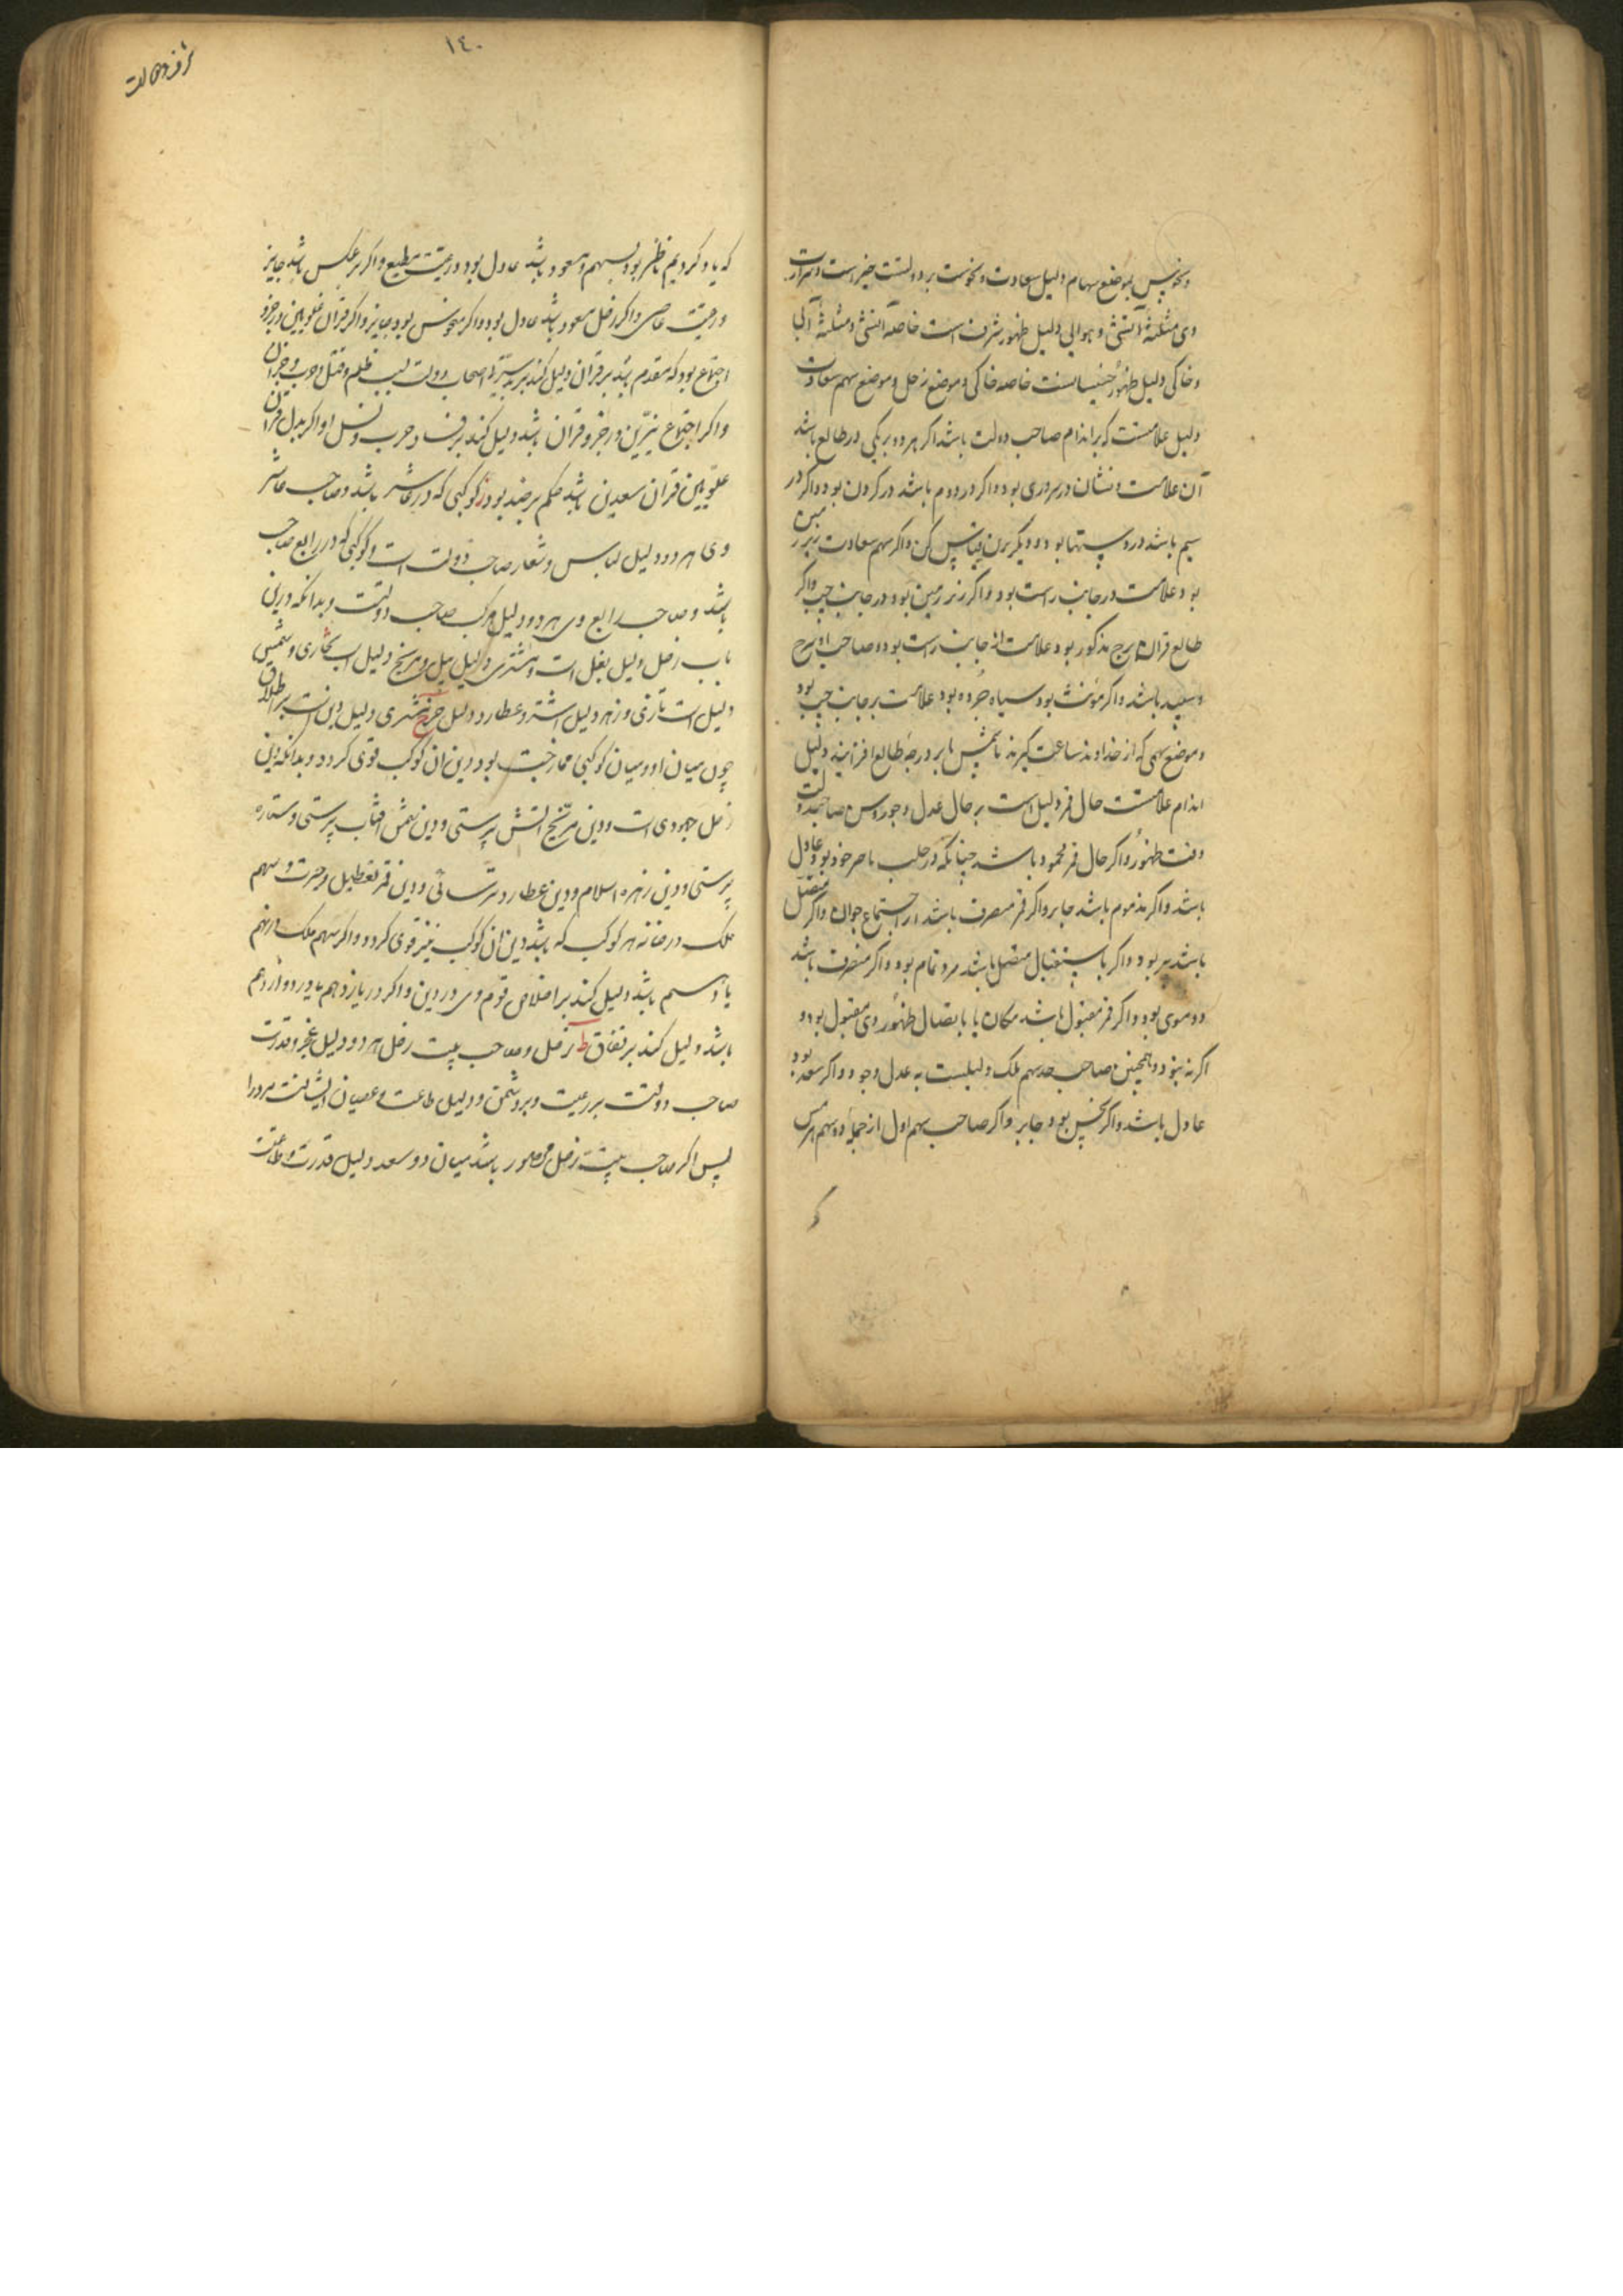 ونحوس بموضع سهام دلیل سعادت ونحوست بر دولتست خیر است
وی مثلثهٔ آتشی و هوایی دلیل ظهور شرف است خاصه آتشی و مثلثهٔ آبی
و خاکی دلیل ظهور خاصه خاکی و موضع زحل و موضع سهم سعادت
دلیل علامتست که بر اندام صاحب دولت باشد اکر هر دو بر یکی در طالع باشد
آن علامت و نشان در سر وری بود و اکر در دوم باشد در کردن بود و اکر در
سیم باشد در دستها بود و دیکر برین قیاس کن و اکر سهم سعادت زبر زمین
بود علامت در جانب راست بود و اکر زیر زمین بود در جانب چپ و اکر
طالع قران برج مذکور بود علامت از جانب راست بود و صاحب او سرخ
و سپید باشد و اکر مؤنث بود سیاه چرده بود علامت بر جانب چپ بود
و موضع سهمی که از خداوند ساعت کیرند تا شمس بر درجهٔ طالع افزایند دلیل
اندام علامتست حال قمر دلیل است بر حال عدل و جور وس صاحب دولت
وقت ظهور و اکر حال قمر محمود باشد چنانکه در حلب یا حیز خود بود عادل
باشد و اکر مذموم باشد جابر و اکر قمر منصرف باشد از اجتماع جوان و اکر متصل
باشد پیر بود و اکر باستقبال متصل باشد مرد تمام بود و اکر منصرف باشد
دو موی بود و اکر قمر مقبول باشد مکان یا باتصال ظهور وی مقبول بود و
اکر نه نبود و همچنین صاحب حد سهم ملک دلیلست به عدل وجور و اکر سعد بود
عادل باشد و اکر نحس بود جابر و اکر صاحب سهم اول از جملهٔ دو سهم
که
١٤٠
که یاد کردیم ناظر بود بسهم و مسعود باشد عادل بود و رعیت مطیع و اکر بر عکس باشد جابر
و رعیت عاصی و اکر زحل مسعود باشد عادل بود و اکر منحوس بود جابر و اکر قران علویین در جزو
اجتماع بود که مقدم باشد بر قران دلیل کند بر بد سیرتی اصحاب دولت بسبب ظلم و قتل و حرب
و اکر اجتماع نیرین در جزو قران باشد دلیل کند بر فساد و حرب و اکر بدل قران
علویین قران سعدین باشد حکم بر ضد بود و کوکبی که در عاشر باشد و صاحب عاشر
وی هر دو دلیل لباس و شعار صاحب دولت است و کوکبی که در رابع صاحب
باشد و صاحب رابع وی هر دو دلیل مرکب صاحب دولت و بدانکه درین
باب زحل دلیل بغل است و مشتری دلیل پیل و مریخ دلیل اسب بخاری و شمس
دلیل است تازی و زهره دلیل اشتر و عطارد دلیل خر مشتری دلیل دین است
چون میان او و میان کوکبی ممازجت بود دین آن کوکب قوی کردد و بدانکه دین
زحل جهودی است و دین مریخ آتش پرستی و دین شمس آفتاب پرستی و ستاره
پرستی و دین زهره اسلام و دین عطارد ترسائی و دین قمر تعطیل و حیرت و سهم
ملک در خانه هر کوکب که باشد دین آن کوکب نیز قوی کردد و اکر سهم ملک در نهم
یا سیم باشد دلیل کند بر اخلاص قوم وی در دین و اکر در یازدهم یا در دوازدهم
باشد دلیل کند بر نفاق زحل و صاحب بیت زحل هر دو دلیل عجز و قدرت
صاحب دولت بر رعیت و بر دشمن و دلیل طاعت و عصیان ایشانست مر ورا
پس اکر صاحب بیت زحل محصور باشد میان دو سعد دلیل قدرت و